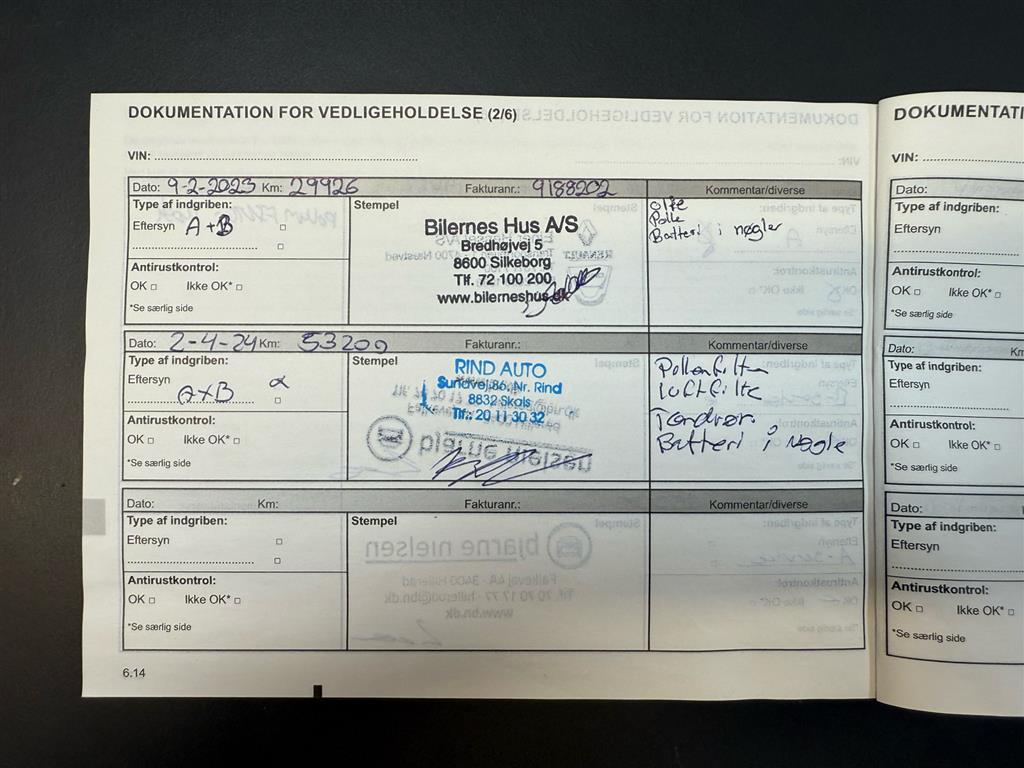 DOKUMENTATION FOR VEDLIGEHOLDELSE (2/6)
VIN:
Dato: 9-2-2023 Km: 29926 Fakturanr.: 9188202 Kommentar/diverse
Type af indgriben:
Eftersyn A+B
Antirustkontrol:
OK Ikke OK*
*Se særlig side
Stempel
Bilernes Hus A/S
Bredhøjvej 5
8600 Silkeborg
Tlf. 72 100 200
www.bilerneshus.dk
olie
Polle
Batteri i nøgler
Dato: 2-4-24 Km: 53200 Fakturanr.: Kommentar/diverse
Type af indgriben:
Eftersyn
a+B
Antirustkontrol:
OK Ikke OK*
*Se særlig side
Stempel
RIND AUTO
Sundvej 86, Nr. Rind
8832 Skals
Tlf.: 20 11 30 32
Pollenfilter
luftfilte
Tændrør
Batteri i Nøgle
Dato: Km: Fakturanr.: Kommentar/diverse
Type af indgriben:
Eftersyn
Antirustkontrol:
OK Ikke OK*
*Se særlig side
Stempel
bjarne nielsen
Falkevej 4A · 3400 Hillerød
Tlf. 70 70 17 77 · hillerod@bn.dk
www.bn.dk
6.14
DOKUMENTATI
VIN:
Dato:
Type af indgriben:
Eftersyn
Antirustkontrol:
OK Ikke OK*
*Se særlig side
Dato: Km
Type af indgriben:
Eftersyn
Antirustkontrol:
OK Ikke OK*
*Se særlig side
Dato:
Type af indgriben:
Eftersyn
Antirustkontrol:
OK Ikke OK*
*Se særlig side